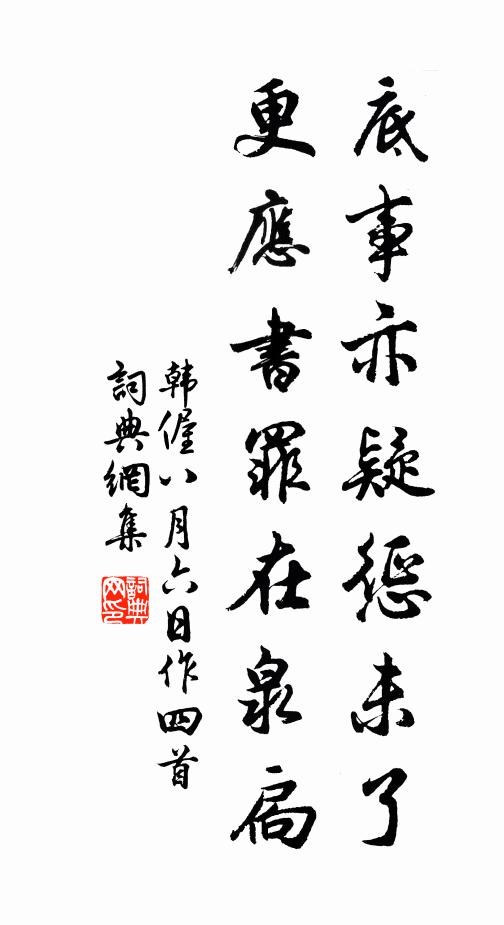 底事亦疑懲未了
更應書罪在泉扃
韩偓八月六日作四首
詞典網集
詞典網印